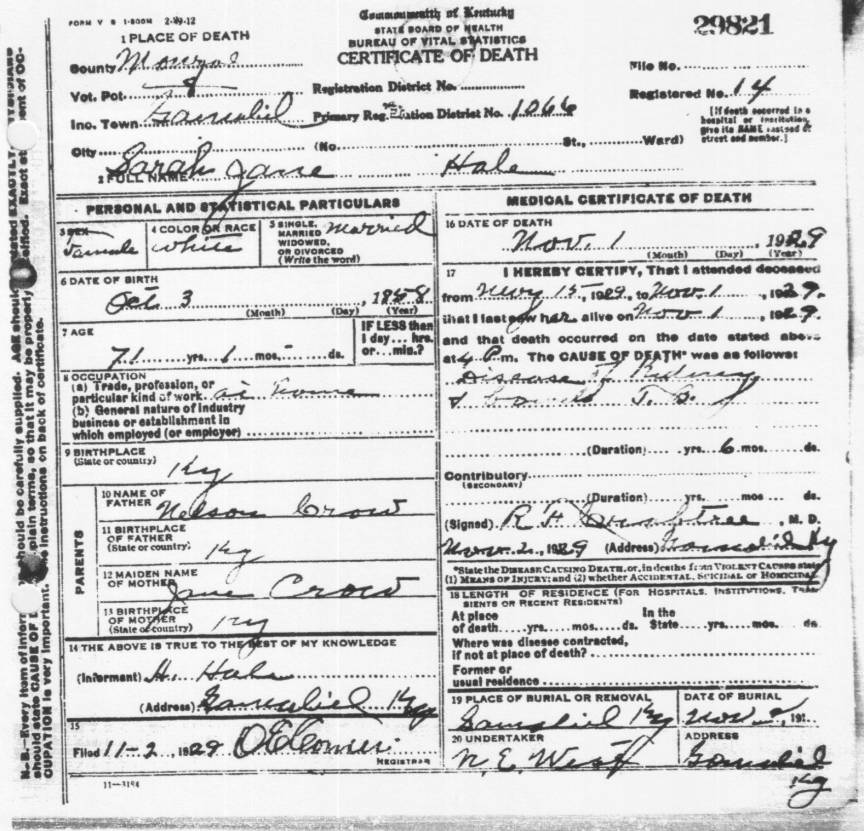 FORM V S 1-500M 2-19-12
Commonwealth of Kentucky
STATE BOARD OF HEALTH
BUREAU OF VITAL STATISTICS
CERTIFICATE OF DEATH
29821
1 PLACE OF DEATH
County Monroe
Vot. Pct. 4
Inc. Town Gamaliel
City (No. St., Ward)
Registration District No.
Primary Registration District No. 1066
File No.
Registered No. 14
[If death occurred in a hospital or institution, give its NAME instead of street and number.]
2 FULL NAME Sarah Jane Hale
PERSONAL AND STATISTICAL PARTICULARS
3 SEX Female
4 COLOR OR RACE white
5 SINGLE, MARRIED WIDOWED, OR DIVORCED (Write the word) Married
6 DATE OF BIRTH
Oct 3, 1858
(Month) (Day) (Year)
7 AGE
71 yrs. 1 mos. - ds.
IF LESS than 1 day... hrs. or... min.?
8 OCCUPATION
(a) Trade, profession, or particular kind of work at home
(b) General nature of industry business or establishment in which employed (or employer)
9 BIRTHPLACE
(State or country) Ky
PARENTS
10 NAME OF FATHER Nelson Crow
11 BIRTHPLACE OF FATHER (State or country) Ky
12 MAIDEN NAME OF MOTHER Jane Crow
13 BIRTHPLACE OF MOTHER (State or country) Ky
14 THE ABOVE IS TRUE TO THE BEST OF MY KNOWLEDGE
(Informant) H. Hale
(Address) Gamaliel Ky
15
Filed 11-2 1929
REGISTRAR
11-3184
MEDICAL CERTIFICATE OF DEATH
16 DATE OF DEATH
Nov. 1 1929
(Month) (Day) (Year)
17 I HEREBY CERTIFY, That I attended deceased
from 15, 1929, to Nov. 1, 1929.
that I last saw her alive on Nov 1, 1929.
and that death occurred on the date stated above
at 4 P.m. The CAUSE OF DEATH* was as follows:
Disease of Kidney
(Duration) yrs. 6 mos. ds.
Contributory
(SECONDARY)
(Duration) yrs. mos. ds.
(Signed) R F, M. D.
Nov. 2, 1929 (Address) Gamaliel Ky
*State the DISEASE CAUSING DEATH, or, in deaths from VIOLENT CAUSES state (1) MEANS OF INJURY; and (2) whether ACCIDENTAL, SUICIDAL or HOMICIDAL
18 LENGTH OF RESIDENCE (FOR HOSPITALS, INSTITUTIONS, TRANSIENTS OR RECENT RESIDENTS)
At place of death yrs. mos. ds. In the State yrs. mos. ds.
Where was disease contracted, if not at place of death?
Former or usual residence
19 PLACE OF BURIAL OR REMOVAL
Gamaliel Ky
DATE OF BURIAL
Nov 2, 191
20 UNDERTAKER
N. E. West
ADDRESS
Gamaliel Ky